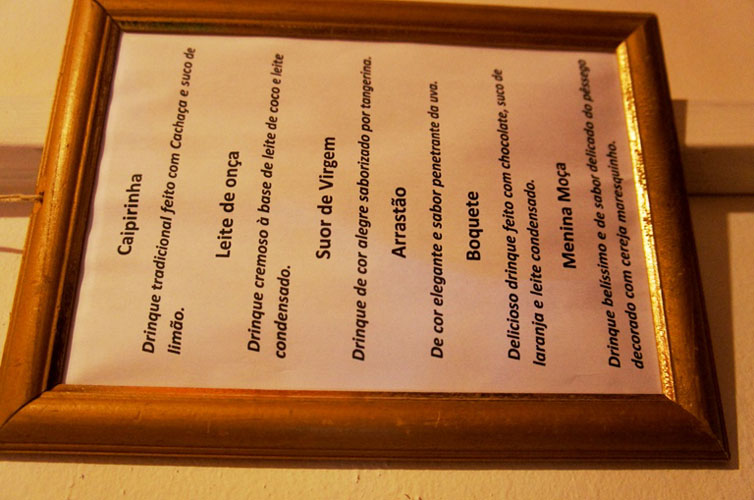 Caipirinha
Drinque tradicional feito com Cachaça e suco de
limão.
Leite de onça
Drinque cremoso à base de leite de coco e leite
condensado.
Suor de Virgem
Drinque de cor alegre saborizado por tangerina.
Arrastão
De cor elegante e sabor penetrante da uva.
Boquete
Delicioso drinque feito com chocolate, suco de
laranja e leite condensado.
Menina Moça
Drinque belíssimo e de sabor delicado do pêssego
decorado com cereja maresquinho.